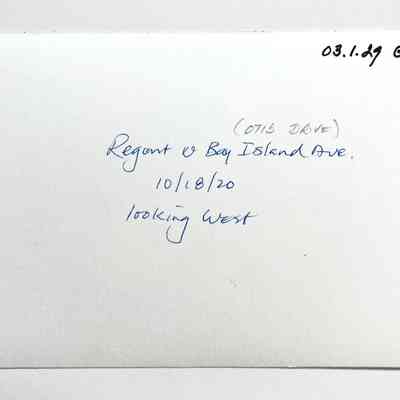 03.1.29
(OTIS DRIVE)
Regent & Bay Island Ave.
10/18/20
looking West